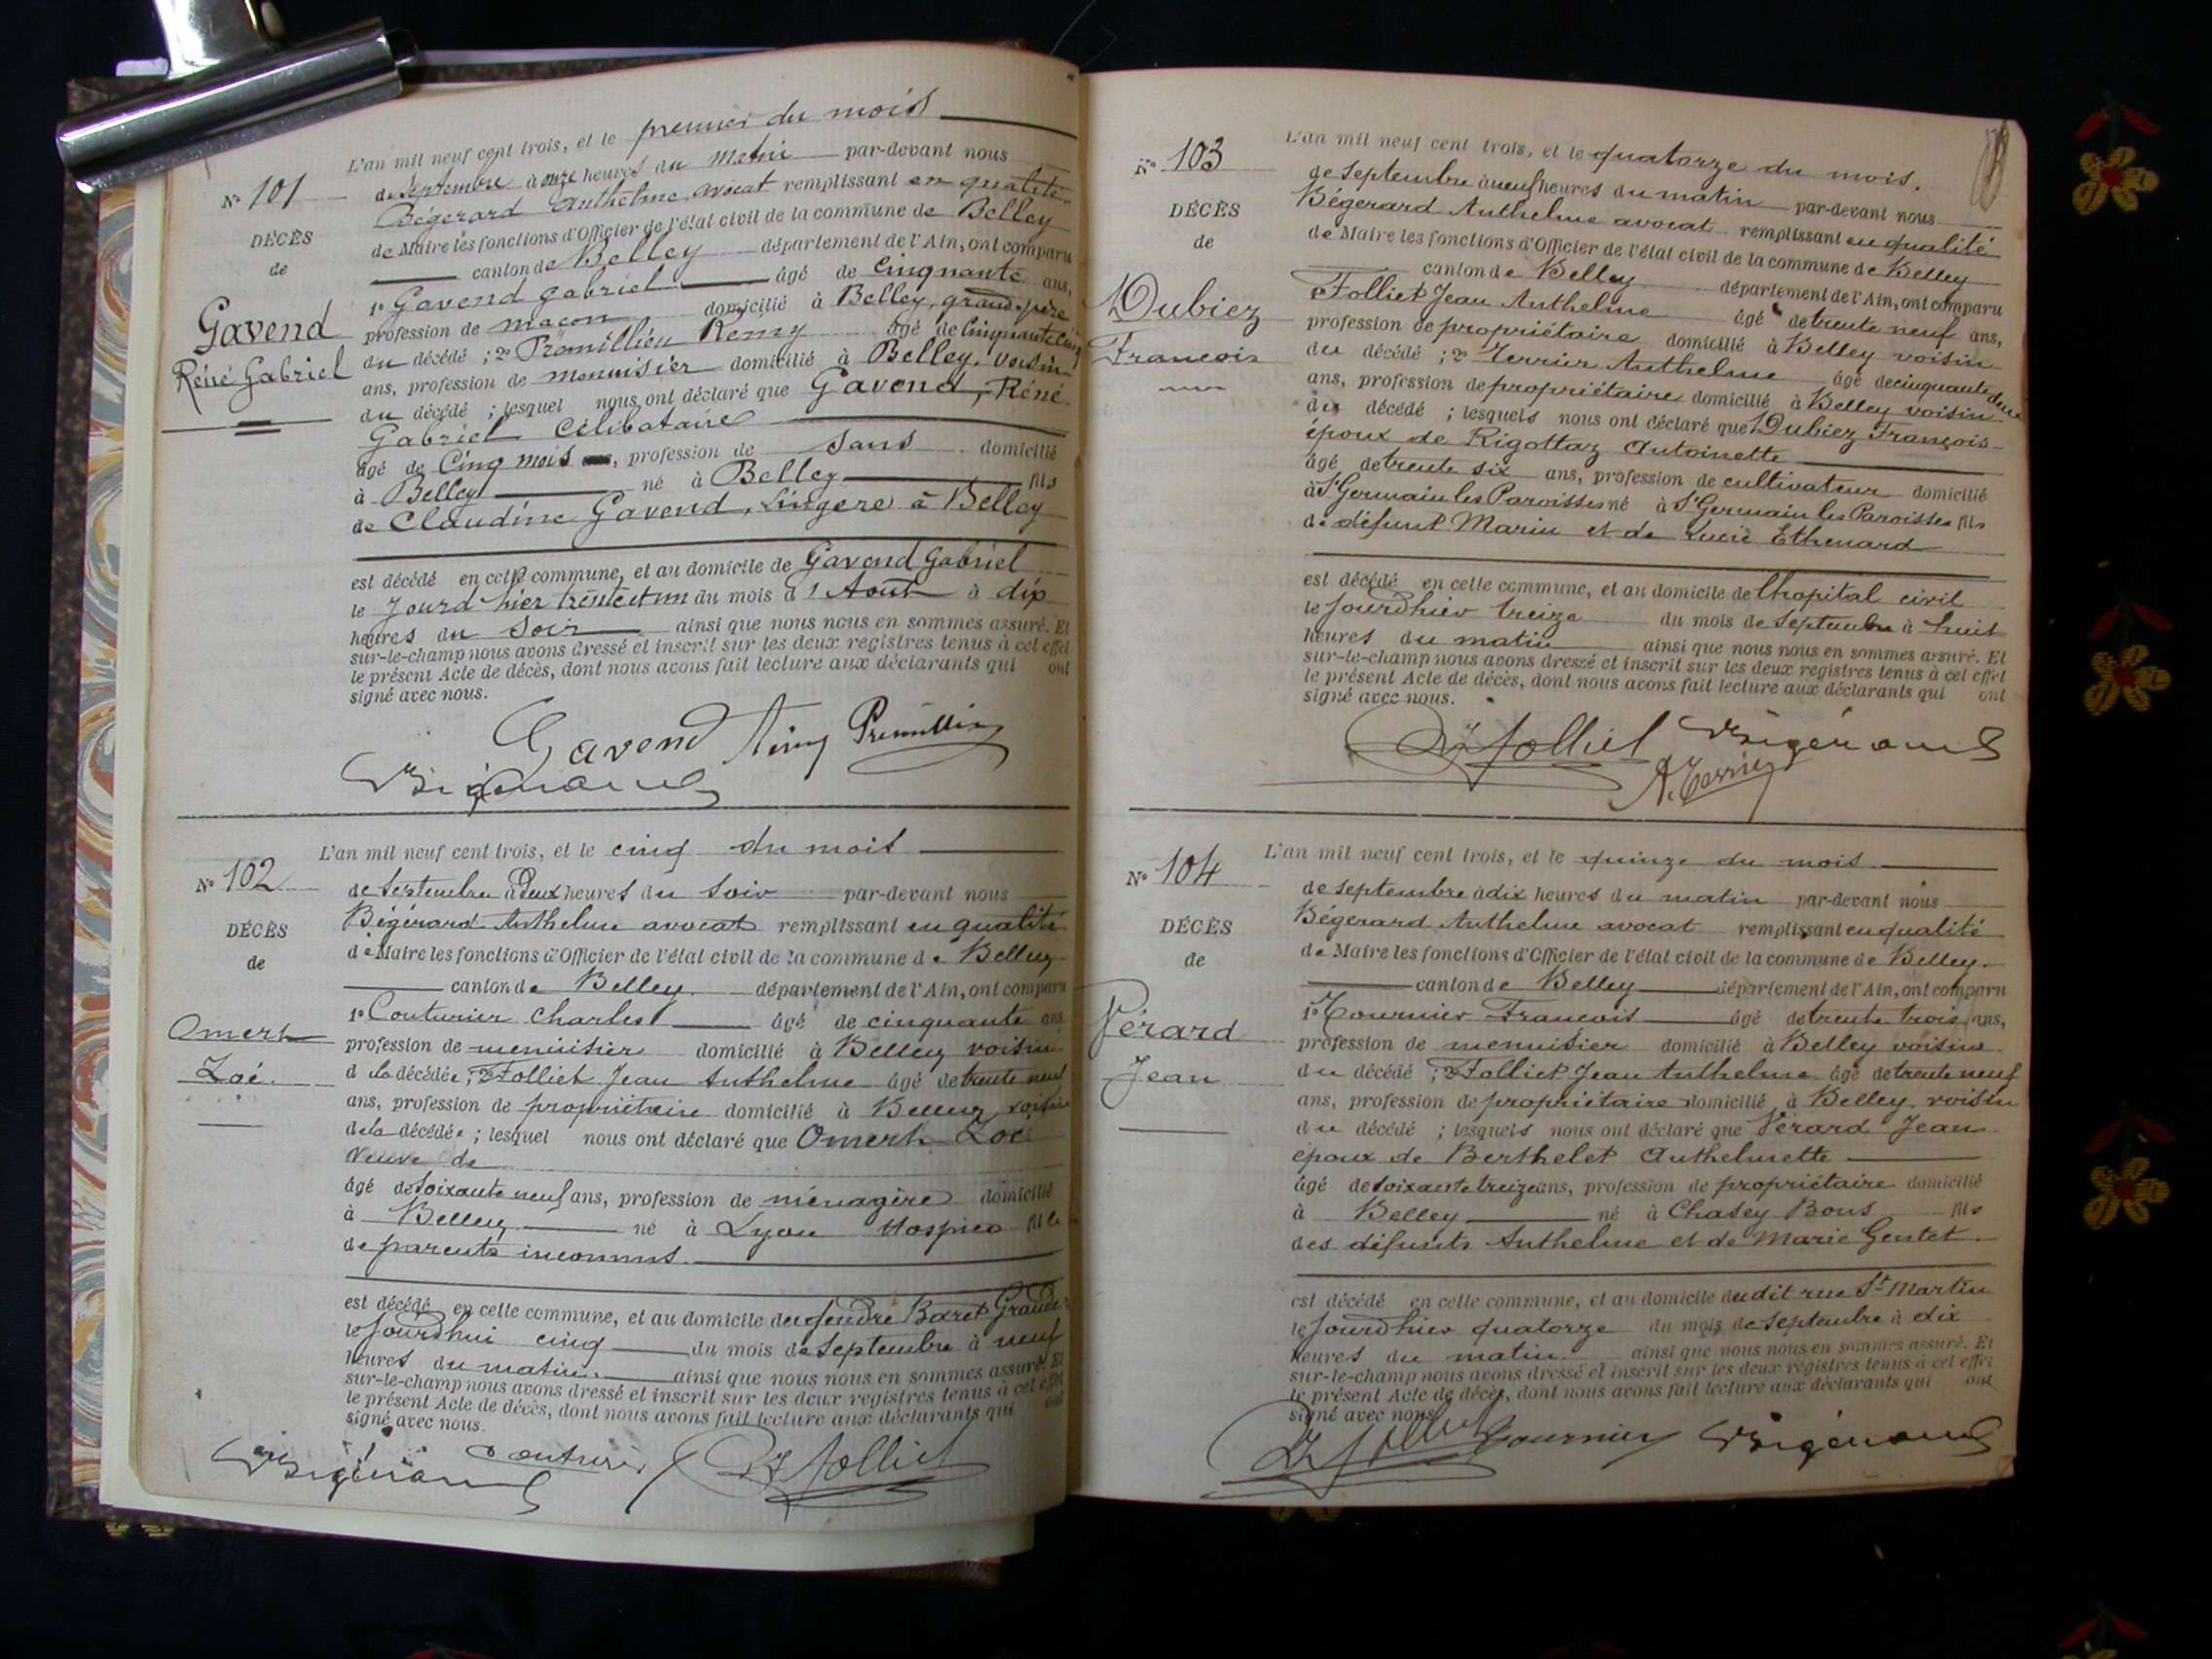 L'an mil neuf cent trois, et le premier du mois
N° 101
de Septembre à onze heures du Matin par-devant nous
Bégerard Anthelme avocat remplissant en qualité
DÉCÈS
de Maire les fonctions d'Officier de l'état civil de la commune de Belley
de
canton de Belley département de l'Ain, ont comparu
1° Gavend gabriel âgé de Cinquante ans,
Gavend
profession de maçon domicilié à Belley, grand-père
Réné Gabriel
du décédé ; 2° Promillieu Remy âgé de Cinquante cinq
ans, profession de menuisier domicilié à Belley, voisin
du décédé ; lesquel nous ont déclaré que Gavend, Réné
Gabriel Célibataire
âgé de Cinq mois, profession de Sans domicilié
à Belley né à Belley fils
de Claudine Gavend, Lingère à Belley
est décédé en cette commune, et au domicile de Gavend Gabriel
le Jourd'hier trente et un du mois d'Août à dix
heures du Soir ainsi que nous nous en sommes assuré. Et
sur-le-champ nous avons dressé et inscrit sur les deux registres tenus à cet effet
le présent Acte de décès, dont nous avons fait lecture aux déclarants qui ont
signé avec nous.
Gavend Rémy
Bégerard
L'an mil neuf cent trois, et le cinq du mois
N° 102
de Septembre à Deux heures du Soir par-devant nous
Bégérard Anthelme avocat remplissant en qualité
DÉCÈS
de Maire les fonctions d'Officier de l'état civil de la commune de Belley
de
canton de Belley département de l'Ain, ont comparu
1° Couturier Charles âgé de cinquante ans
Omerh
profession de menuisier domicilié à Belley voisin
Zoé.
de la décédée ; 2° Folliet Jean Anthelme âgé de trente neuf
ans, profession de propriétaire domicilié à Belley voisin
de la décédée ; lesquel nous ont déclaré que Omerh Zoé
Veuve de
âgé de soixante neuf ans, profession de ménagère domicilié
à Belley né à Lyon Hospice fille
de parents inconnus.
est décédé en cette commune, et au domicile du gendre Baret Grande
le Jourdhui cinq du mois de Septembre à neuf
heures du matin. ainsi que nous nous en sommes assuré. Et
sur-le-champ nous avons dressé et inscrit sur les deux registres tenus à cet effet
le présent Acte de décès, dont nous avons fait lecture aux déclarants qui ont
signé avec nous.
Bégerard Couturier Folliet
L'an mil neuf cent trois, et le quatorze du mois.
N° 103
de Septembre à neuf heures du matin par-devant nous
Bégerard Anthelme avocat remplissant en qualité
DÉCÈS
de Maire les fonctions d'Officier de l'état civil de la commune de Belley
de
canton de Belley département de l'Ain, ont comparu
Folliet Jean Anthelme âgé de trente neuf ans,
Dubiez
profession de propriétaire domicilié à Belley voisin
François
du décédé ; 2° Terrier Anthelme âgé de cinquante deux
ans, profession de propriétaire domicilié à Belley voisin
du décédé ; lesquels nous ont déclaré que Dubiez François
époux de Rigottaz Antoinette
âgé de trente six ans, profession de cultivateur domicilié
à St Germain les Paroisses né à St Germain les Paroisses fils
de défunt Marin et de Lucie Ethenard
est décédé en cette commune, et au domicile de lhopital civil
le Jourdhier treize du mois de Septembre à huit
heures du matin ainsi que nous nous en sommes assuré. Et
sur-le-champ nous avons dressé et inscrit sur les deux registres tenus à cet effet
le présent Acte de décès, dont nous avons fait lecture aux déclarants qui ont
signé avec nous.
Folliet Bégerard
A. Terrier
L'an mil neuf cent trois, et le quinze du mois
N° 104
de septembre à dix heures du matin par-devant nous
Bégerard Anthelme avocat remplissant en qualité
DÉCÈS
de Maire les fonctions d'Officier de l'état civil de la commune de Belley.
de
canton de Belley département de l'Ain, ont comparu
1° Tournier François âgé de trente trois ans,
Pérard
profession de menuisier domicilié à Belley voisin
Jean
du décédé ; 2° Folliet Jean Anthelme âgé de trente neuf
ans, profession de propriétaire domicilié à Belley voisin
du décédé ; lesquels nous ont déclaré que Pérard Jean
époux de Berthelet Anthelmette
âgé de soixante treize ans, profession de propriétaire domicilié
à Belley né à Chasey Bons fils
des défunts Anthelme et de Marie Gentet.
est décédé en cette commune, et au domicile du dit rue St Martin
le Jourdhier quatorze du mois de Septembre à dix
heures du matin. ainsi que nous nous en sommes assuré. Et
sur-le-champ nous avons dressé et inscrit sur les deux registres tenus à cet effet
le présent Acte de décès, dont nous avons fait lecture aux déclarants qui ont
signé avec nous.
Folliet Tournier Bégerard